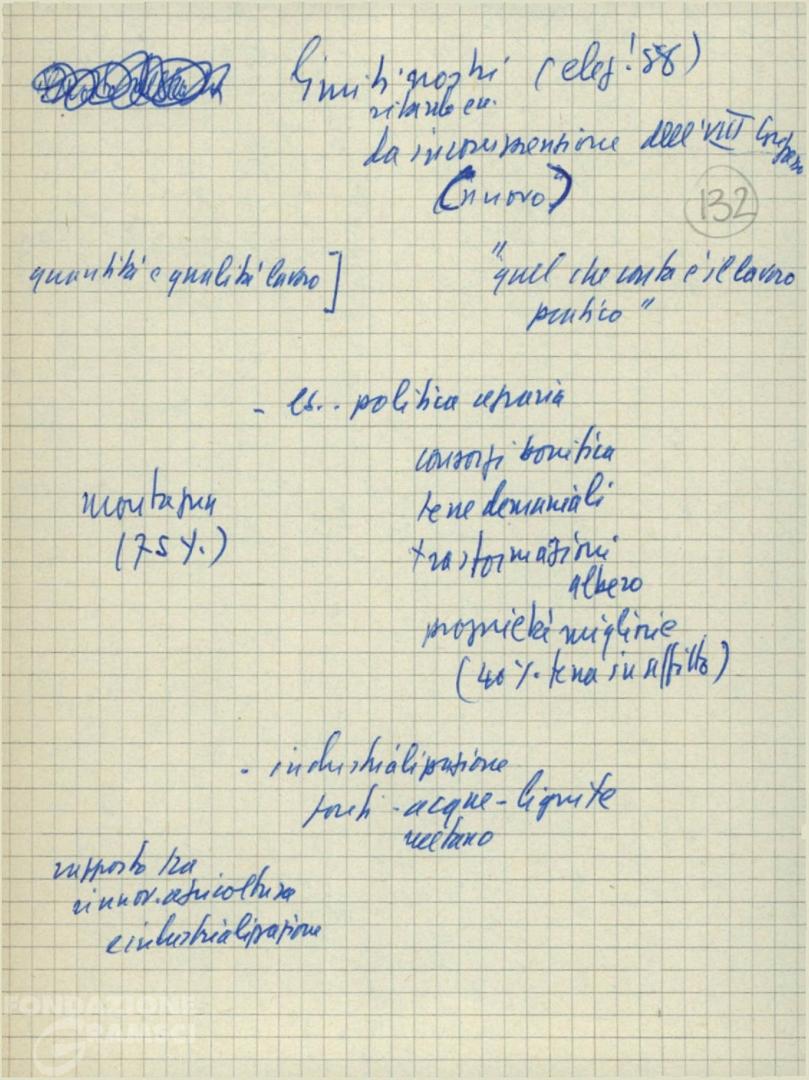 Limiti nostri (elez! 58)
da incomprensione dell'VIII Congresso
("nuovo")
132
quantità e qualità lavoro]
"quel che conta è il lavoro
pratico"
- es.. politica agraria
consorzi bonifica
montagna
terre demaniali
(75%.)
trasformazioni
albero
proprietà migliorie
(40%. terra in affitto)
- industrializzazione
fonti - acque - lignite
metano
rapporto tra
rinnov. agricoltura
e industrializzazione
FONDAZIONE
GRAMSCI